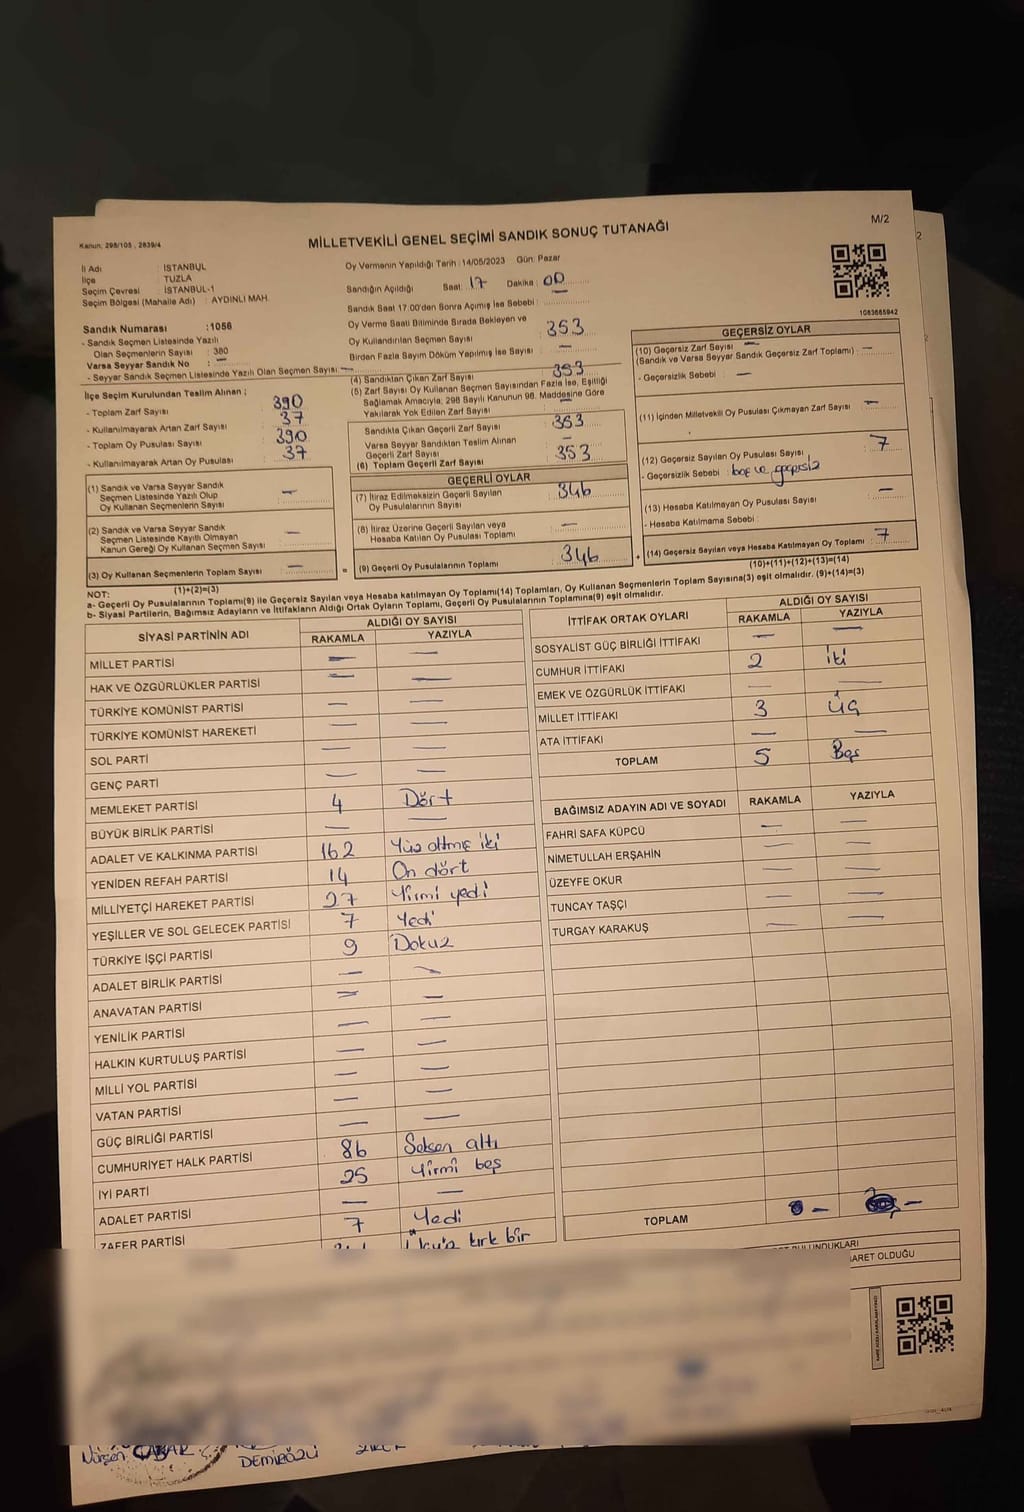 M/2
Kanun, 298/105 , 2839/4
MİLLETVEKİLİ GENEL SEÇİMİ SANDIK SONUÇ TUTANAĞI
İl Adı : İSTANBUL
İlçe : TUZLA
Seçim Çevresi : İSTANBUL-1
Seçim Bölgesi (Mahalle Adı) : AYDINLI MAH.
Oy Vermenin Yapıldığı Tarih : 14/05/2023 Gün: Pazar
Sandığın Açıldığı Saat: 17 Dakika: 00
Sandık Saat 17.00'den Sonra Açımış İse Sebebi : —
Oy Verme Saati Bitiminde Sırada Bekleyen ve
Oy Kullandırılan Seçmen Sayısı : 353
Birden Fazla Sayım Döküm Yapılmış İse Sayısı : —
1083665942
Sandık Numarası : 1056
- Sandık Seçmen Listesinde Yazılı
Olan Seçmenlerin Sayısı : 380
Varsa Seyyar Sandık No : —
- Seyyar Sandık Seçmen Listesinde Yazılı Olan Seçmen Sayısı: —
İlçe Seçim Kurulundan Teslim Alınan ;
- Toplam Zarf Sayısı : 390
- Kullanılmayarak Artan Zarf Sayısı : 37
- Toplam Oy Pusulası Sayısı : 390
- Kullanılmayarak Artan Oy Pusulası : 37
(1) Sandık ve Varsa Seyyar Sandık
Seçmen Listesinde Yazılı Olup
Oy Kullanan Seçmen Sayısı : —
(2) Sandık ve Varsa Seyyar Sandık
Seçmen Listesinde Kayıtlı Olmayan
Kanun Gereği Oy Kullanan Seçmen Sayısı : —
(3) Oy Kullanan Seçmenlerin Toplam Sayısı : —
(1)+(2)=(3)
(4) Sandıktan Çıkan Zarf Sayısı : 353
(5) Zarf Sayısı Oy Kullanan Seçmen Sayısından Fazla İse, Eşitliği
Sağlamak Amacıyla, 298 Sayılı Kanunun 98. Maddesine Göre
Yakılarak Yok Edilen Zarf Sayısı : —
Sandıkta Çıkan Geçerli Zarf Sayısı : 353
Varsa Seyyar Sandıktan Teslim Alınan
Geçerli Zarf Sayısı : —
(6) Toplam Geçerli Zarf Sayısı : 353
GEÇERLİ OYLAR
(7) İtiraz Edilmeksizin Geçerli Sayılan
Oy Pusulalarının Sayısı : 346
(8) İtiraz Üzerine Geçerli Sayılan veya
Hesaba Katılan Oy Pusulası Toplamı : —
= (9) Geçerli Oy Pusulalarının Toplamı : 346
GEÇERSİZ OYLAR
(10) Geçersiz Zarf Sayısı —
(Sandık ve Varsa Seyyar Sandık Geçersiz Zarf Toplamı) : —
- Geçersizlik Sebebi : —
(11) İçinden Milletvekili Oy Pusulası Çıkmayan Zarf Sayısı : —
(12) Geçersiz Sayılan Oy Pusulası Sayısı : 7
- Geçersizlik Sebebi : boş ve geçersiz
(13) Hesaba Katılmayan Oy Pusulası Sayısı : —
- Hesaba Katılmama Sebebi :
+ (14) Geçersiz Sayılan veya Hesaba Katılmayan Oy Toplamı : 7
(10)+(11)+(12)+(13)=(14)
NOT:
a- Geçerli Oy Pusulalarının Toplamı(9) ile Geçersiz Sayılan veya Hesaba katılmayan Oy Toplamı(14) Toplamları, Oy Kullanan Seçmenlerin Toplam Sayısına(3) eşit olmalıdır. (9)+(14)=(3)
b- Siyasi Partilerin, Bağımsız Adayların ve İttifakların Aldığı Ortak Oyların Toplamı, Geçerli Oy Pusulalarının Toplamına(9) eşit olmalıdır.
SİYASİ PARTİNİN ADI ALDIĞI OY SAYISI
RAKAMLA YAZIYLA
MİLLET PARTİSİ — —
HAK VE ÖZGÜRLÜKLER PARTİSİ — —
TÜRKİYE KOMÜNİST PARTİSİ — —
TÜRKİYE KOMÜNİST HAREKETİ — —
SOL PARTİ — —
GENÇ PARTİ — —
MEMLEKET PARTİSİ 4 Dört
BÜYÜK BİRLİK PARTİSİ — —
ADALET VE KALKINMA PARTİSİ 162 Yüz altmış iki
YENİDEN REFAH PARTİSİ 14 On dört
MİLLİYETÇİ HAREKET PARTİSİ 27 Yirmi yedi
YEŞİLLER VE SOL GELECEK PARTİSİ 7 Yedi
TÜRKİYE İŞÇİ PARTİSİ 9 Dokuz
ADALET BİRLİK PARTİSİ — —
ANAVATAN PARTİSİ — —
YENİLİK PARTİSİ — —
HALKIN KURTULUŞ PARTİSİ — —
MİLLİ YOL PARTİSİ — —
VATAN PARTİSİ — —
GÜÇ BİRLİĞİ PARTİSİ — —
CUMHURİYET HALK PARTİSİ 86 Seksen altı
İYİ PARTİ 25 Yirmi beş
ADALET PARTİSİ — —
ZAFER PARTİSİ 7 Yedi
kırk bir
İTTİFAK ORTAK OYLARI ALDIĞI OY SAYISI
RAKAMLA YAZIYLA
SOSYALİST GÜÇ BİRLİĞİ İTTİFAKI — —
CUMHUR İTTİFAKI 2 iki
EMEK VE ÖZGÜRLÜK İTTİFAKI — —
MİLLET İTTİFAKI 3 üç
ATA İTTİFAKI — —
TOPLAM 5 Beş
BAĞIMSIZ ADAYIN ADI VE SOYADI RAKAMLA YAZIYLA
FAHRİ SAFA KÜPCÜ — —
NİMETULLAH ERŞAHİN — —
ÜZEYFE OKUR — —
TUNCAY TAŞÇI — —
TURGAY KARAKUŞ — —
TOPLAM — —
BULUNDUKLARI
ARET OLDUĞU
Nurşen
DEMİRÖZÜ